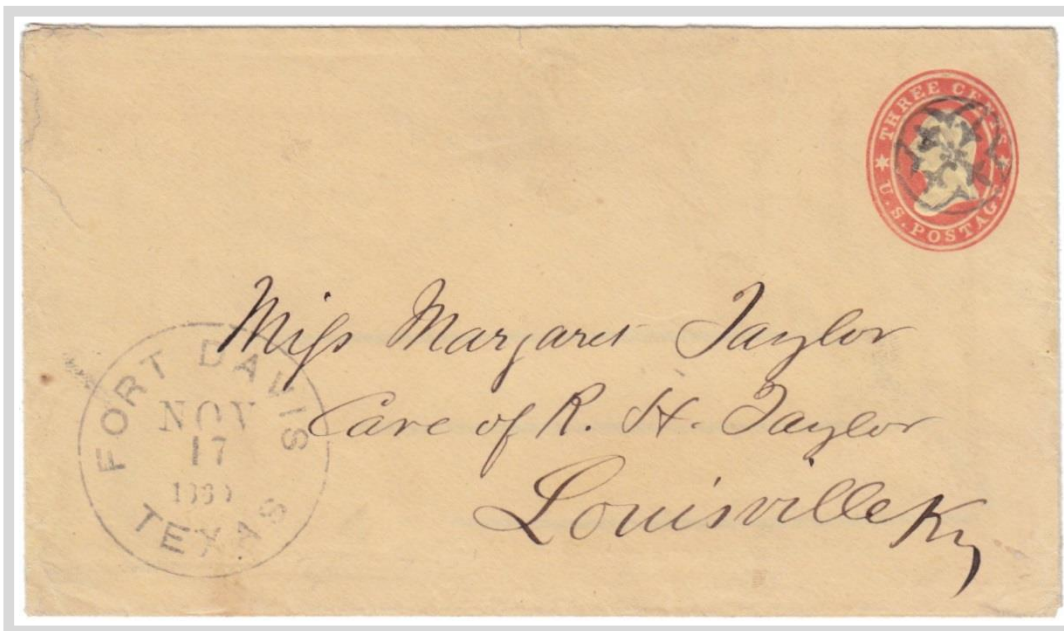 THREE CENTS
U.S. POSTAGE
Miss Margaret Taylor
Care of R. H. Taylor
Louisville Ky
FORT DAVIS
NOV
17
TEXAS